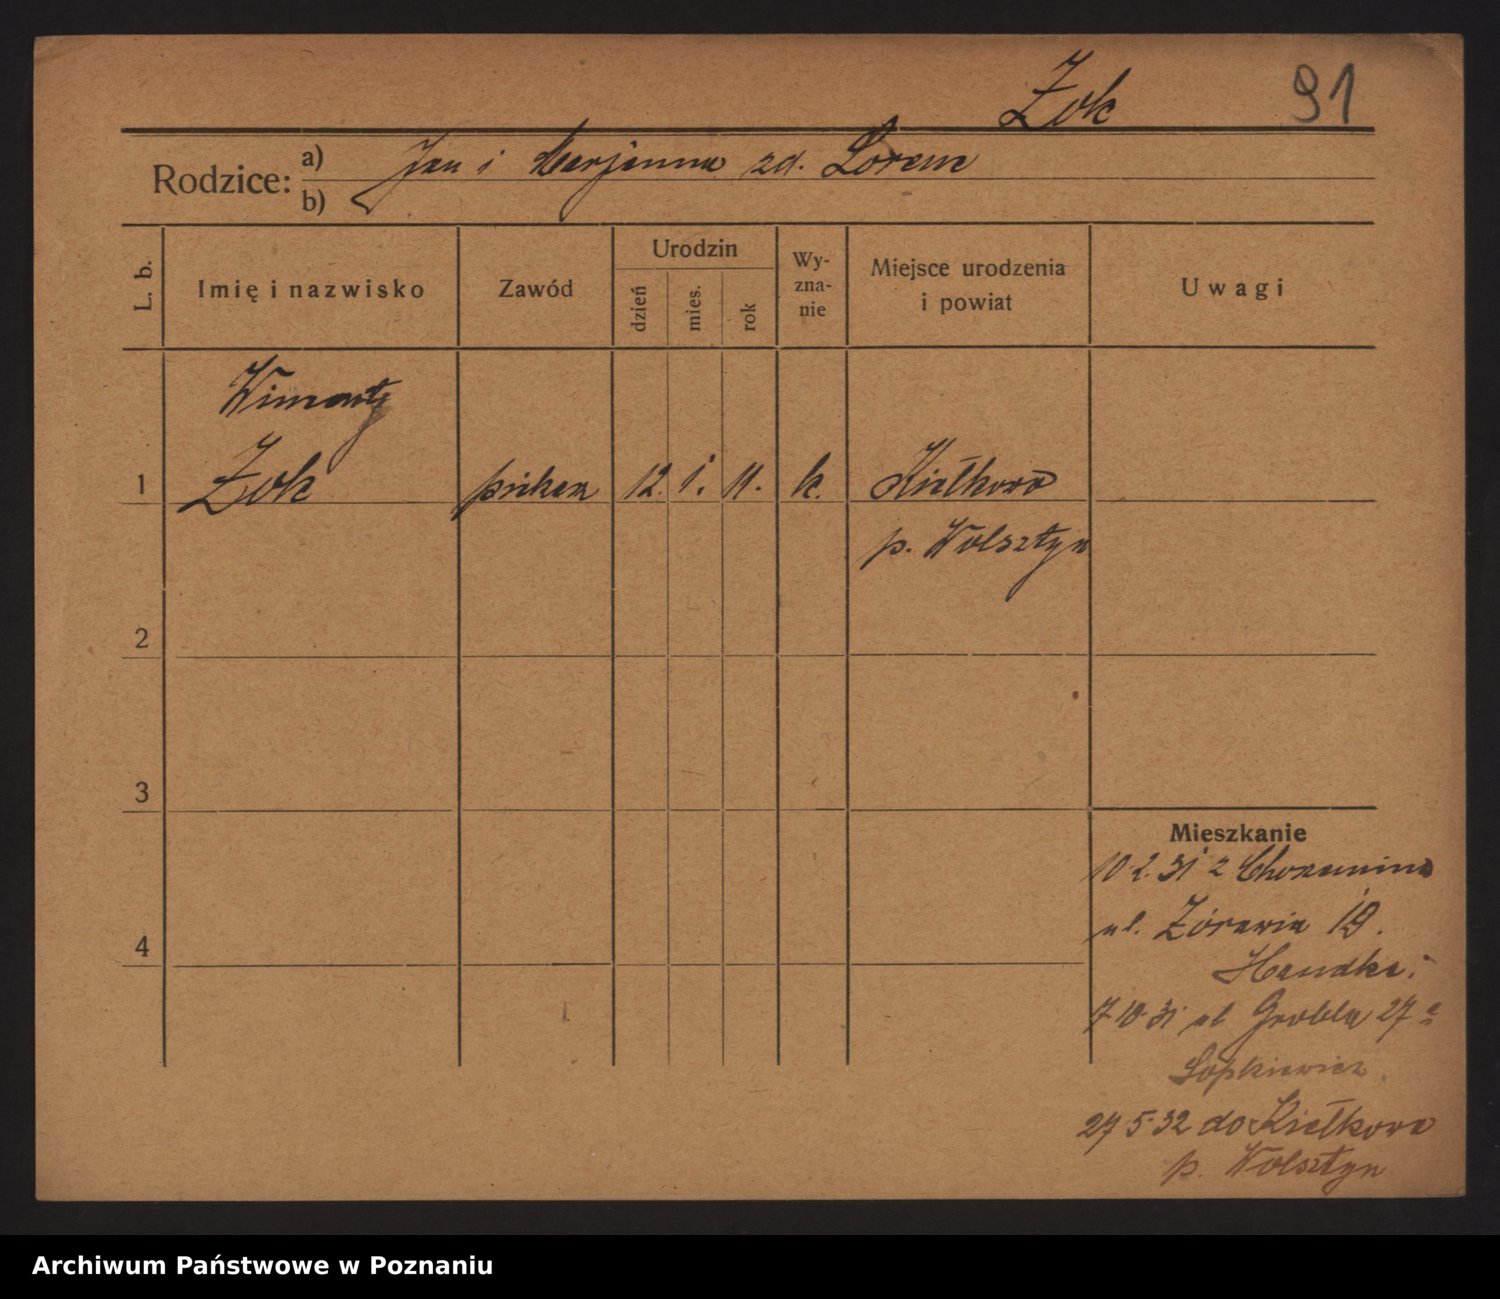 Żok 91
Rodzice: a) Jan i Marjanna zd. Lorenz
b)
L. b. Imię i nazwisko Zawód Urodzin dzień mies. rok Wyznanie Miejsce urodzenia i powiat Uwagi
Żok piekarz 12. i. 11. k. Kiełkowo
1
p. Wolsztyn
2
3
4
Mieszkanie
10.2.31 z
ul. Żórawia 19.
Handke.
7.10.31 ul Grobla 27
27.5.32 do Kiełkowa
p. Wolsztyn
Archiwum Państwowe w Poznaniu